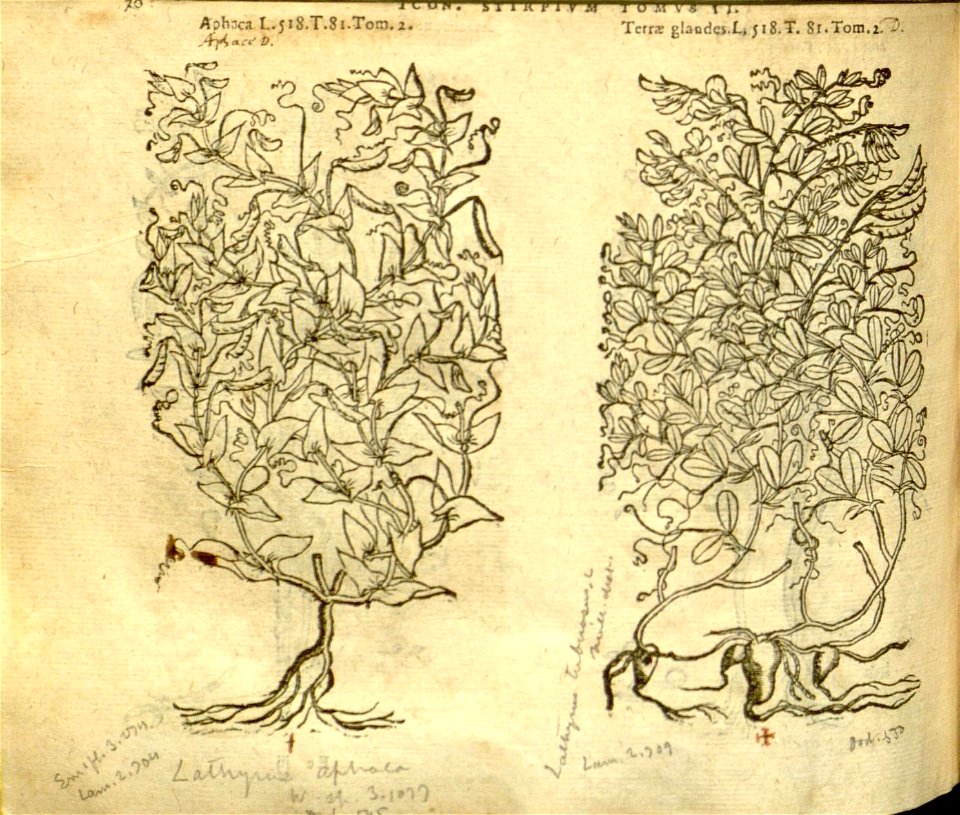 70
ICON. STIRPIVM TOMVS II.
Aphaca L.518.T.81.Tom.2.
Aphace D.
Terræ glandes.L.518.T. 81.Tom.2. D.
Lathyrus tuberosus. L
Lam. 2.704
Lathyrus aphaca
W. sp. 3.1077
Lam. 2.709